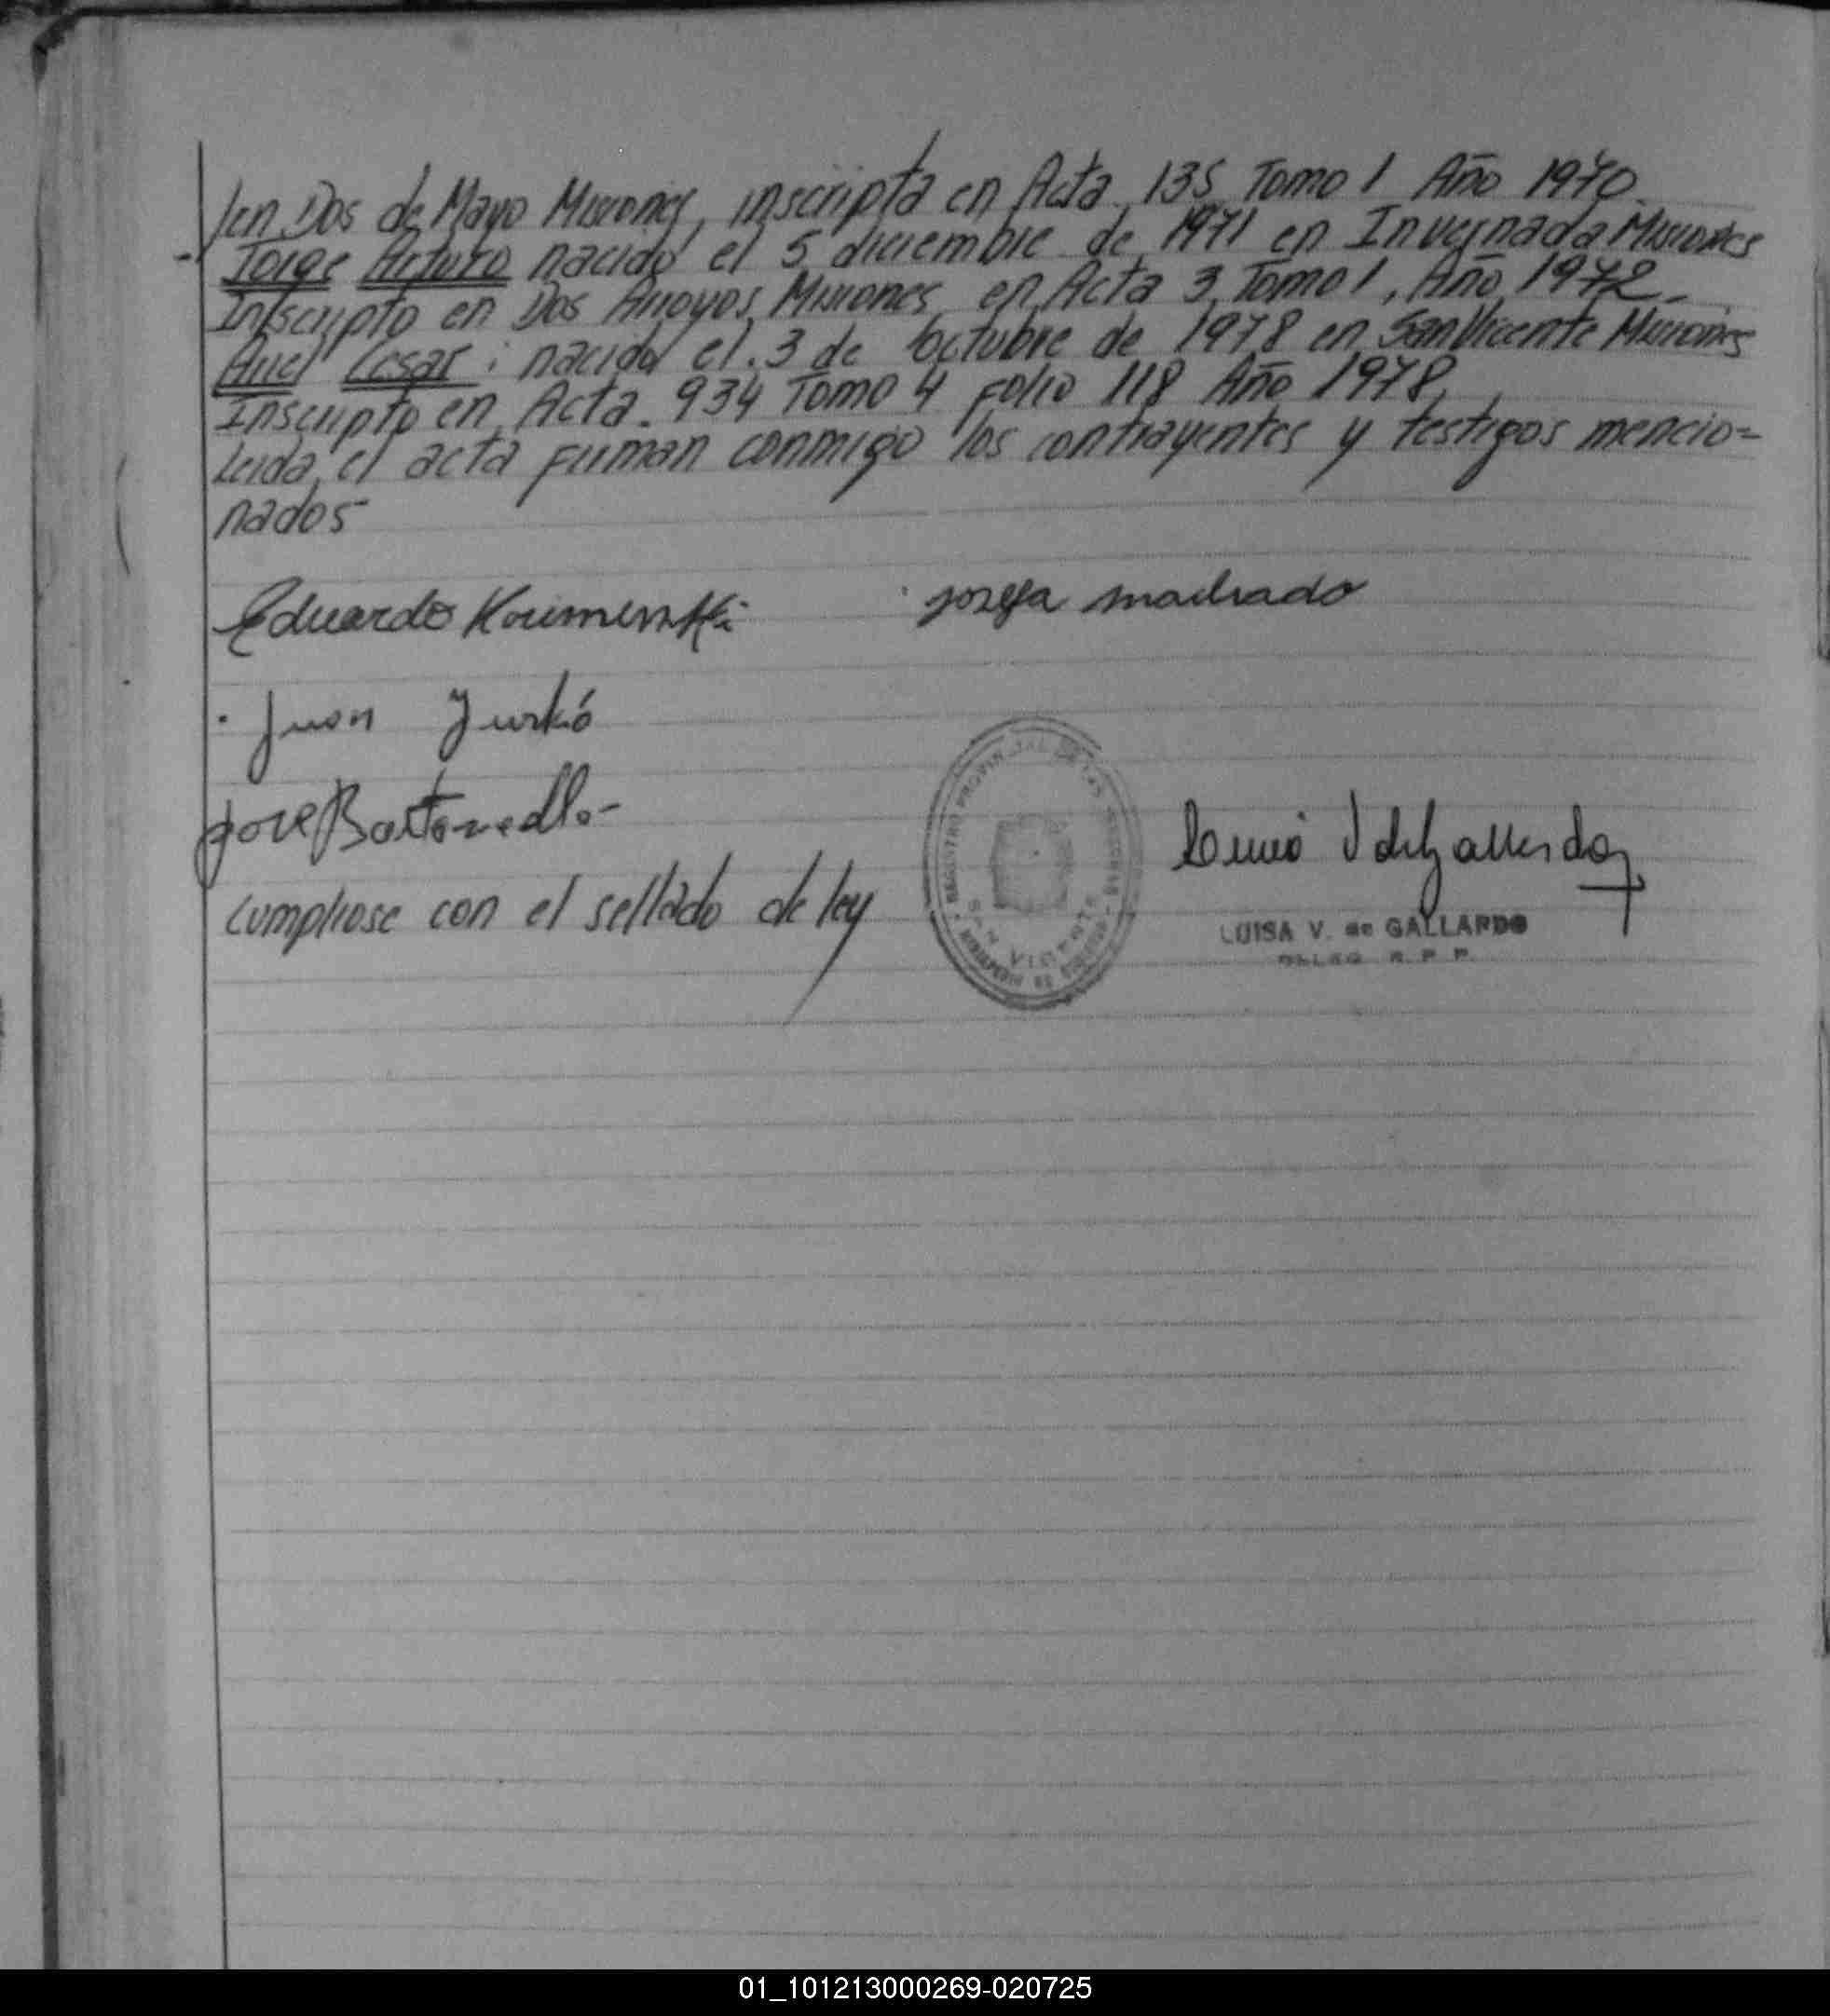 en Dos de Mayo Misiones, inscripta en Acta 135 Tomo 1 Año 1970.
Jorge Arturo nacido el 5 diciembre de 1971 en Invernada Misiones
Inscripto en Dos Arroyos Misiones en Acta 3, Tomo 1, Año 1972.
Ariel Cesar: nacido el 3 de octubre de 1978 en San Vicente Misiones
Inscripto en Acta 934 Tomo 4 Folio 118 Año 1978,
Leida el acta firman conmigo los contrayentes y testigos mencio=
nados
Eduardo
josefa machado
Juan Yurkó
Jose
REGISTRO PROVINCIAL DE LAS PERSONAS
SAN VICENTE
Cumpliose con el sellado de ley
LUISA V. de GALLARDO
R. P. P.
01_101213000269-020725